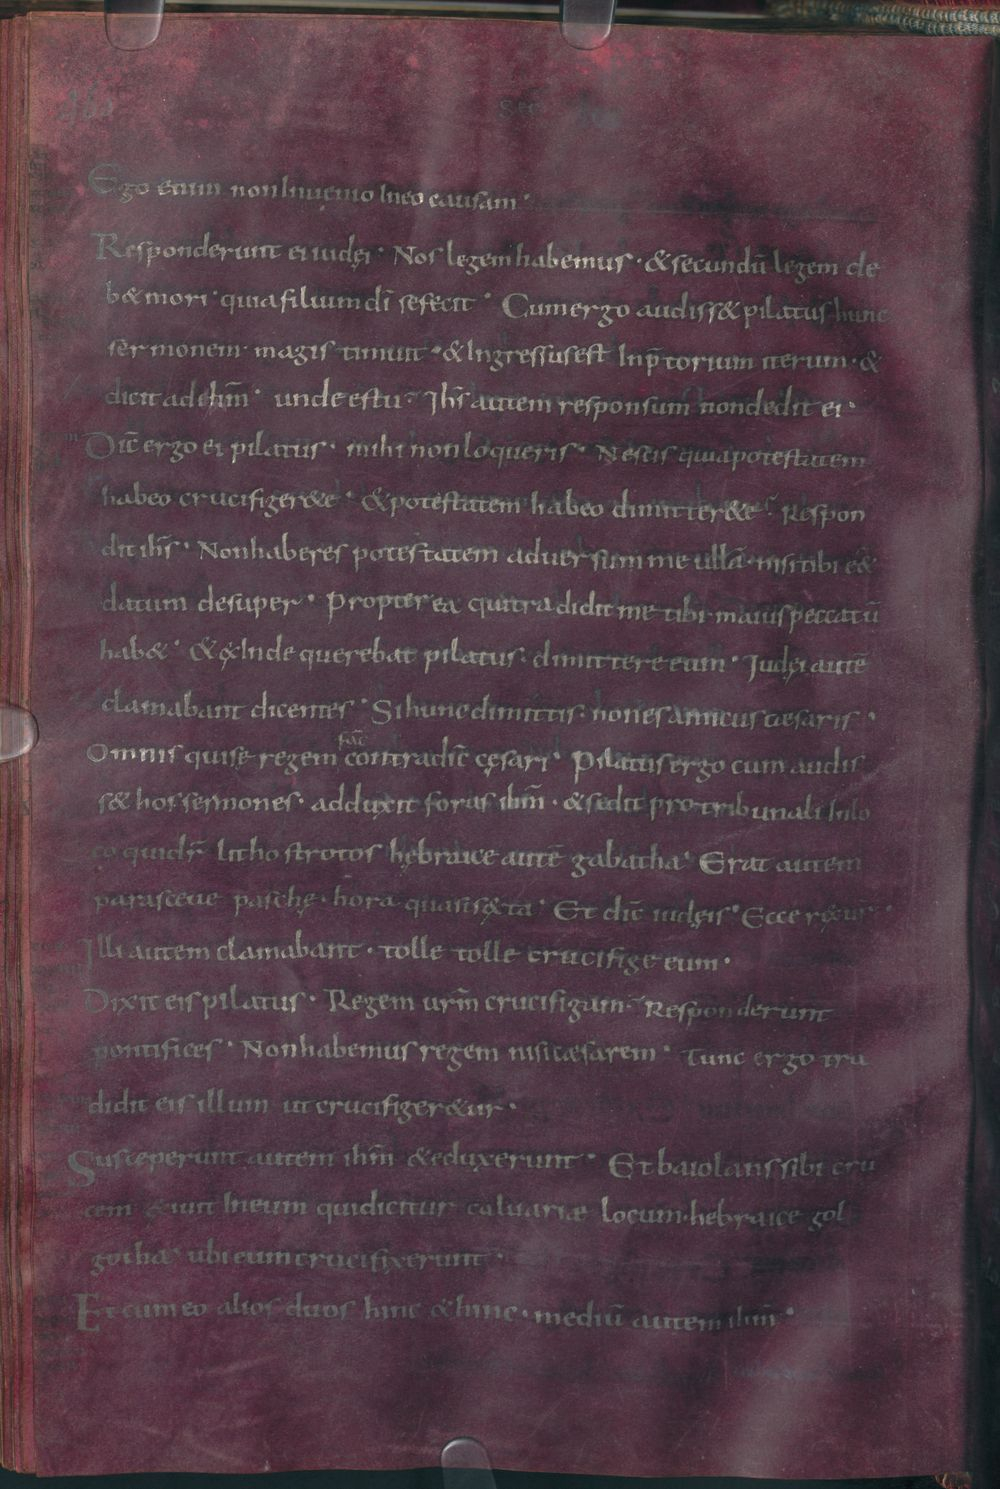 Sec
Ego enim non inuenio in eo causam·
Responderunt ei iudęi· Nos legem habemus· & secundū legem de
b& mori· quia filium dī se fecit· Cum ergo audiss& pilatus hunc
sermonem· magis timuit· & ingressus est in p̄torium iterum· &
dicit ad ihm̄· unde es tu· Ihs̄ autem responsum non dedit ei·
Dic̄ ergo ei pilatus· mihi non loqueris· Nescis quia potestatem
habeo crucifigere te· & potestatem habeo dimittere te· Respon
dit ihs̄· Non haberes potestatem aduersum me ullā· nisi tibi eē&
datum desuper· Propterea qui tradidit me tibi· maius peccatū
hab&· & exinde querebat pilatus· dimittere eum· Iudęi autē
clamabant dicentes· Si hunc dimittis· non es amicus cæsaris·
fac̄
Omnis qui se regem contradic̄ cęsari· Pilatus ergo cum audis
s& hos sermones· adduxit foras ihm̄· & sedit pro tribunali in lo
co qui dr̄ lithostrotos hębraice autē gabatha· Erat autem
parasceue paschę· hora quasi sexta· Et dic̄ iudęis· Ecce rex ur̄·
Illi autem clamabant· tolle tolle crucifige eum·
Dixit eis pilatus· Regem urm̄ crucifigam· Responderunt
pontifices· Non habemus regem nisi cæsarem· Tunc ergo tra
didit eis illum ut crucifiger&ur·
Susceperunt autem ihm̄ & eduxerunt· Et baiolans sibi cru
cem exiuit in eum qui dicitur caluariæ locum· hebraice gol
gotha· ubi eum crucifixerunt·
Et cum eo alios duos hinc & hinc· mediū autem ihm̄·